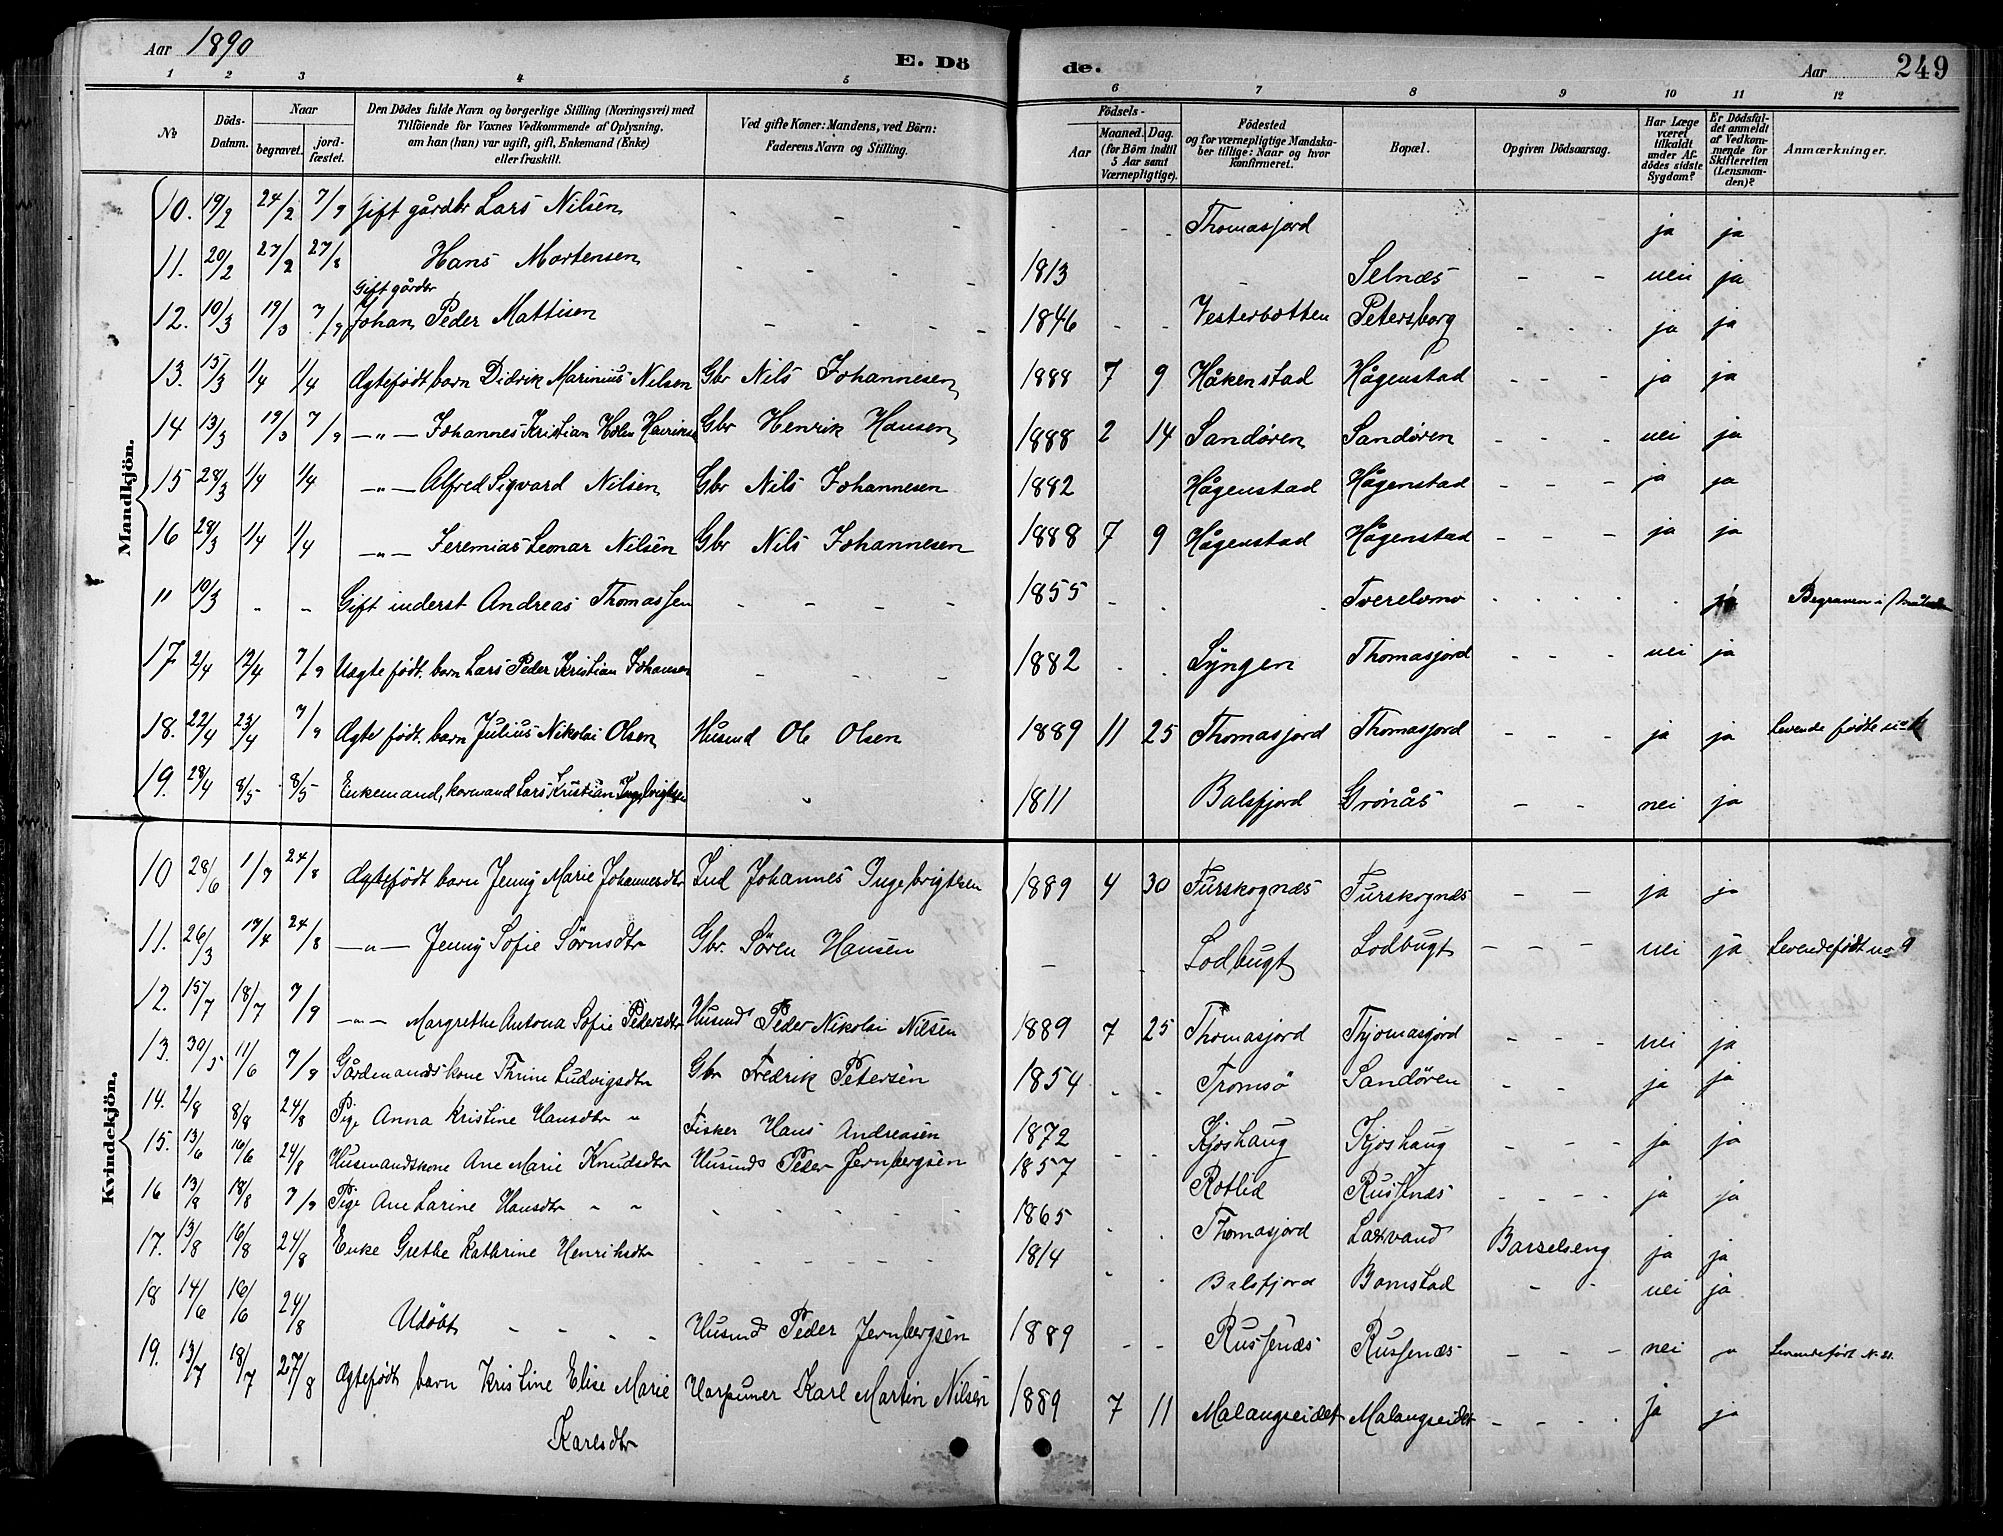 Aar 1890 E. Dö de. Aar 249
1 2 3 4 5 6 7 8 9 10 11 12
No
Döds-Datum.
Naar
begravet.
jord-fæstet.
Den Dödes fulde Navn og borgerlige Stilling (Næringsvei) med
Tilföiende for Voxnes Vedkommende af Oplysning,
om han (hun) var ugift, gift, Enkemand (Enke)
eller fraskilt.
Ved gifte Koner: Mandens, ved Börn:
Faderens Navn og Stilling.
Födsels-
Aar
Maaned. Dag.
(for Börn indtil
5 Aar samt
Værnepligtige).
Födested
og for værnepligtige Mandska-
ber tillige: Naar og hvor
konfirmeret.
Bopæl.
Opgiven Dödsaarsag.
Har Læge
været
tilkaldt
under Af-
dödes sidste
Sygdom?
Er Dödsfal-
det anmeldt
af Vedkom-
mende for
Skifteretten
(Lensman-
den)?
Anmærkninger.
Mandkjön.
10. 19/2 24/2 7/9 Gift gårdbr Lars Nilsen - - - - - - Thomasjord ja ja
11. 20/2 27/2 27/8 Hans Mortensen - - - - 1813 - Selnæs - - nei ja
Gift gårdbr
12. 10/3 19/3 7/9 Johan Peder Mattisen - - - - 1846 - - Vesterbotten Petersborg - - - ja ja
13. 15/3 1/4 1/4 Ægtefødt barn Didrik Marinius Nilsen Gbr Nils Johannesen 1888 7 9 Håkenstad Hågenstad - - - ja ja
14 13/3 19/3 7/9 -"- Johannes Kristian Holm Henriksen Gbr Henrik Hansen 1888 2 14 Sandøren Sandøren - - - nei ja
15 28/3 1/4 1/4 -"- Alfred Sigvard Nilsen Gbr Nils Johannesen 1882 Hågenstad Hågenstad - - - ja ja
16 28/3 1/4 1/4 -"- Jeremias Leonar Nilsen Gbr Nils Johannesen 1888 7 9 Hågenstad Hågenstad - - - ja ja
" 10/3 - - Gift inderst Andreas Thomassen - - - - 1855 - - Tverelvmo - - - - ja Begraven i
17 2/4 12/4 7/9 Uægte født barn Lars Peder Kristian Johansen - - - 1882 - - Lyngen Thomasjord - - - nei ja
18. 22/4 23/4 7/9 Ægte født barn Julius Nikolai Olsen Husmd Ole Olsen 1889 11 25 Thomasjord Thomasjord - - - ja ja Levende fødte no
19. 28/4 8/5 8/5 Enkemand, kormand Lars Kristian Ingebrigtsen " 1811 Balsfjord Grønås - - nei ja
Kvindekjön.
10 28/6 1/7 24/8 Ægtefødt barn Jenny Marie Johannesdtr Ind Johannes Ingebrigtsen 1889 4 30 Furskognæs Furskognæs - - ja ja
11. 26/3 17/4 24/8 -"- Jenny Sofie Sørnsdtr Gbr. Sören Hansen - - Lodbugt Lodbugt - - - nei ja Levendefødt no 9
12. 15/7 18/7 7/9 -"- Margrethe Antona Sofie Pedersdtr Husmd Peder Nikolai Nilsen 1889 7 25 Thomasjord Thjomasjord - - - nei ja
13. 30/5 11/6 7/9 Gårdmandskone Thrine Ludvigsdtr Gbr Fredrik Petersen 1854 - - Tromsö Sandøren - - ja ja
14. 2/8 8/8 24/8 Pige Anna Kristine Hansdtr " Fisker Hans Andreasen 1872 - - Kjoshaug Kjoshaug - - - ja ja
15. 13/6 16/6 24/8 Husmandskone Ane Marie Knudsdtr Husmd Peder Jernbergsen 1857 Rotlid Russenæs - - - - ja ja
16 13/8 18/8 7/9 Pige Ane Larine Hansdtr " " - - - - - 1865 - - Thomasjord Laxvand Barselseng ja ja
17. 13/8 16/8 24/8 Enke Grethe Kathrine Henriksdtr - - - - - - 1814 - - Balsfjord Bomstad - - nei ja
18 14/6 16/6 24/8 Udøbt - - - - Husmd Peder Jernbergsen 1889 - - Russenæs Russenæs - - - nei ja Levendefødt N. 21.
19. 13/7 18/7 27/8 Ægtefødt barn Kristine Elise Marie Harpuner Karl Martin Nilsen 1889 7 11 Malangseidet Malangseidet - - - - ja ja
Karlsdtr